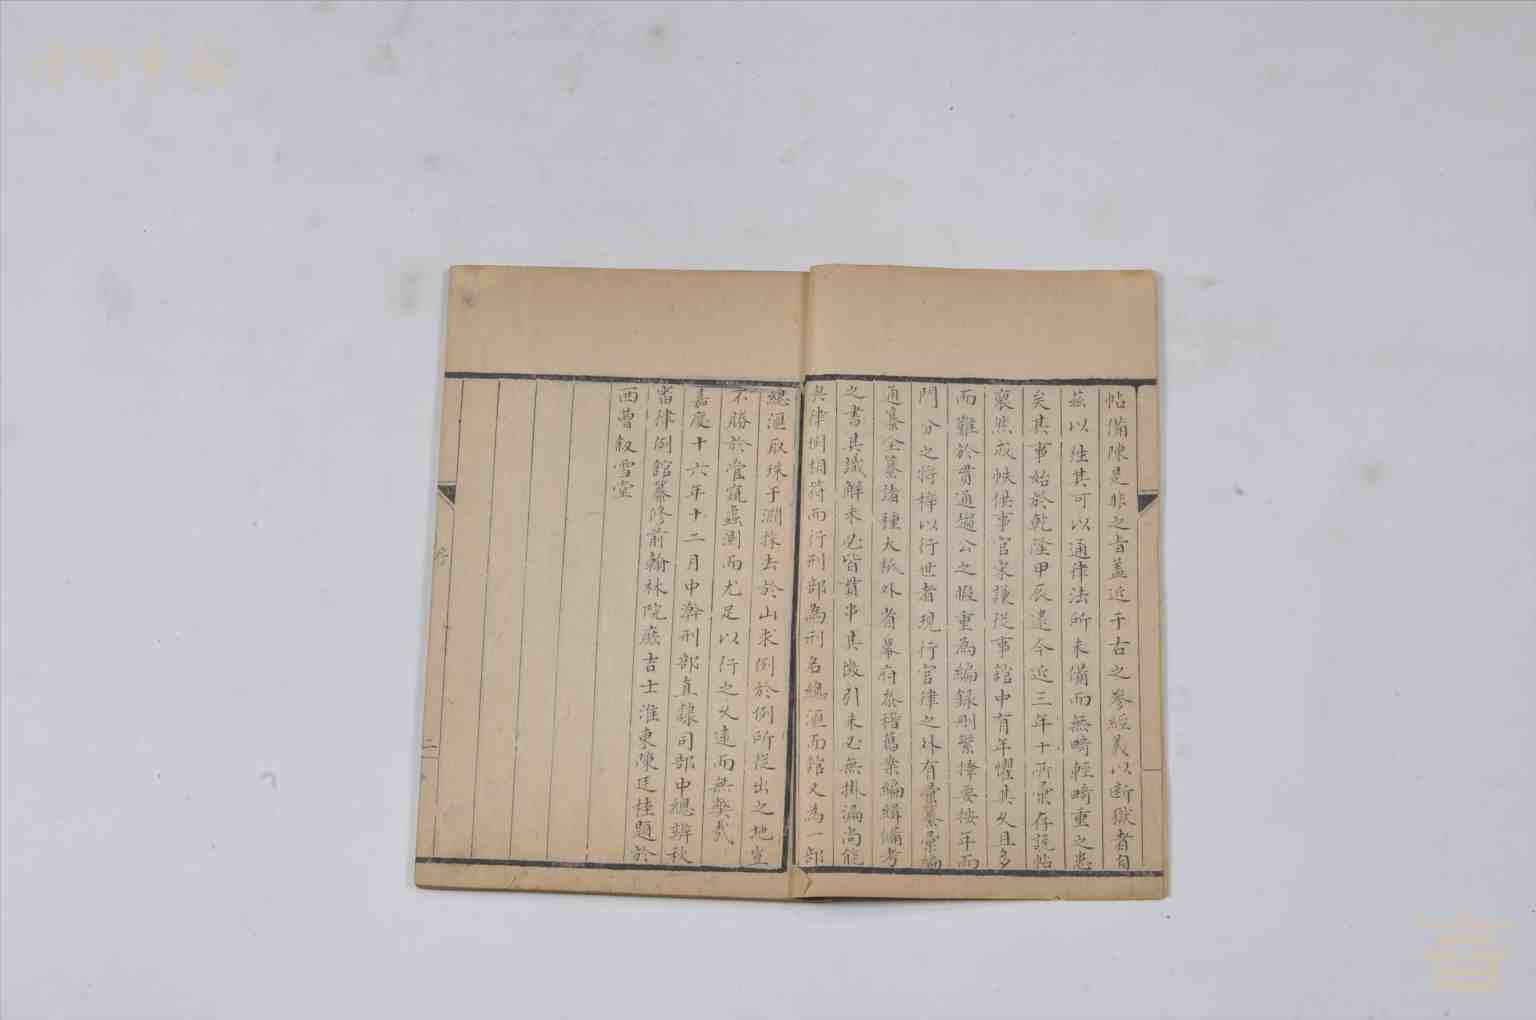 帖備陳是非之旨蓋近于古之參經義以斷獄者自
茲以往其可以通律法所未備而無畸輕畸重之患
矣其事始於乾隆甲辰迄今近三年十所彚存説帖
裒然成帙供事官宋謙從事館中有年懼其久且多
而難於貫通遍公之暇重為編録刪繁擇要按年而
門分之將梓以行世者現行官律之外有彚纂彚編
通纂全纂諸種大抵外省幕府蒐稽舊案編緝備考
之書其識解未必皆貫串其徵引未必無掛漏尚能
與律例相符而行刑部為刑名總滙而館又為一部
總滙取珠于淵採去於山求例於例所從出之地豈
不勝於管窺蠡測而尤足以行之久遠而無弊哉
嘉慶十六年十二月中澣刑部直隷司部中總辦秋
審律例館纂修前翰林院庶吉士淮東陳廷桂題於
西曹叙雪堂
序
二